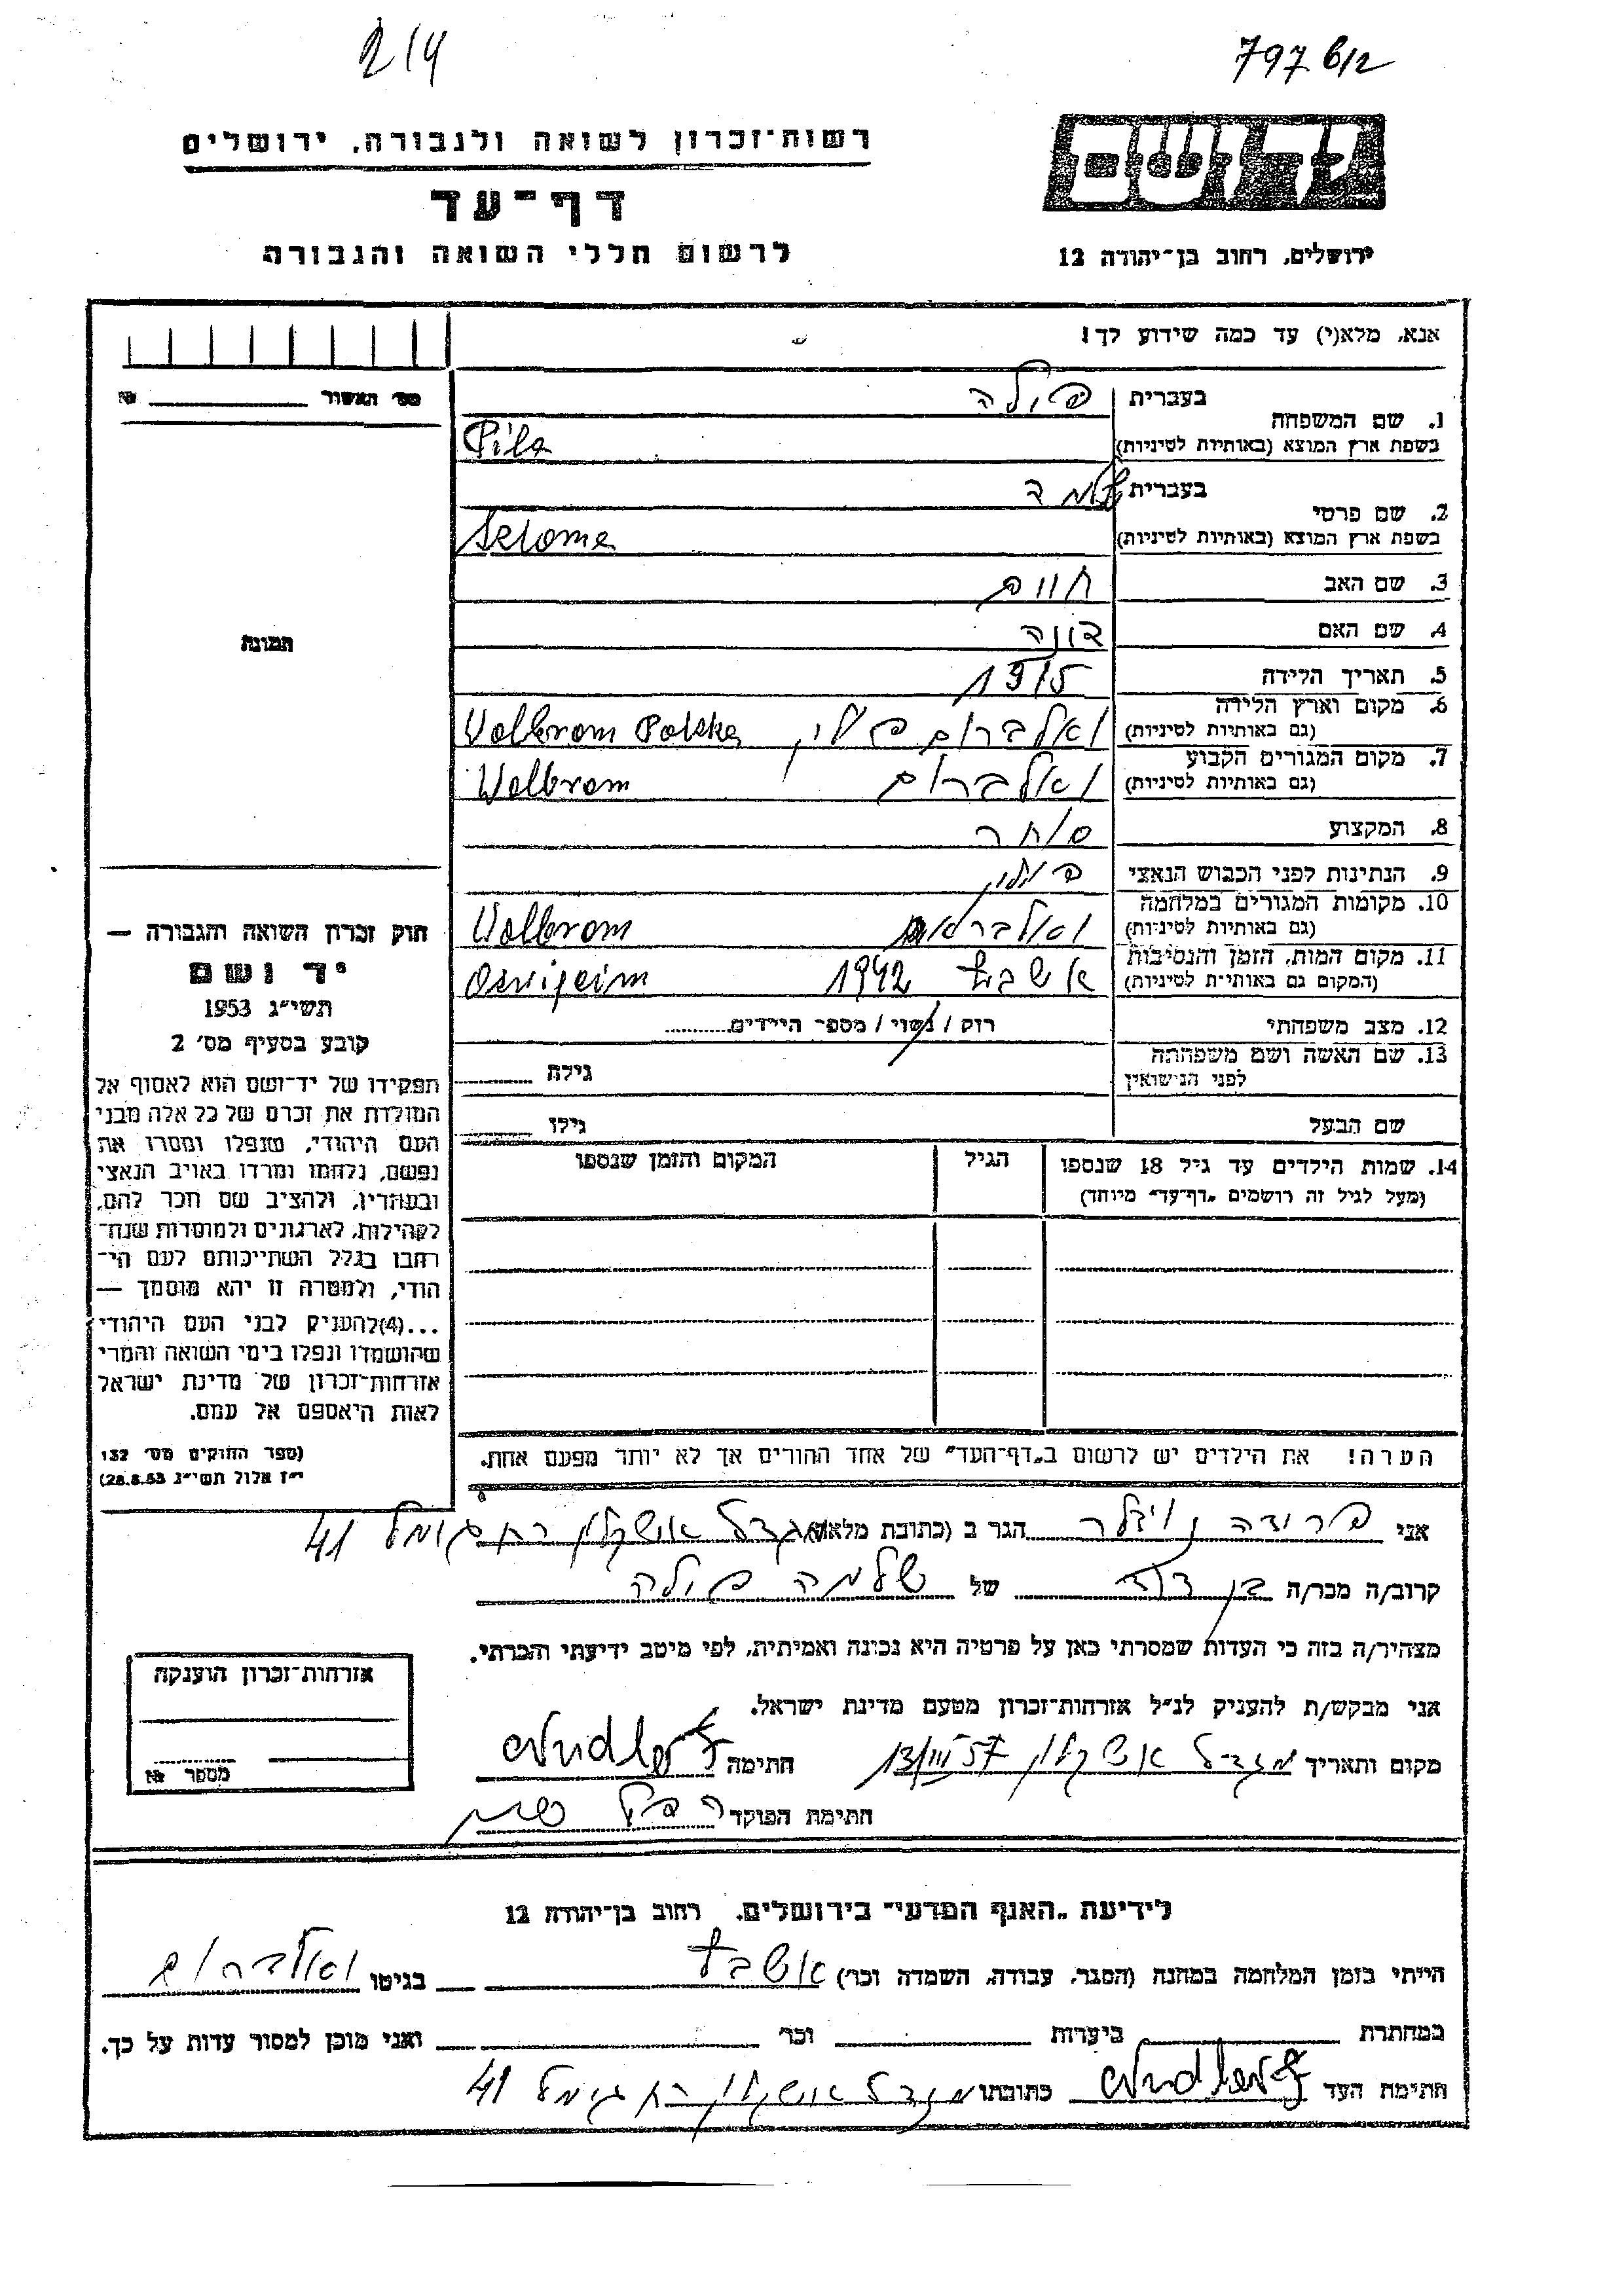 214
797 612
רשות־זכרון לשואה ולגבורה, ירושלים
יד ושם
דף־עד
לרשום חללי השואה והגבורה
ירושלים, רחוב בן־יהודה 12
אנא, מלא(י) עד כמה שידוע לך!
מס׳ האשור №
1. שם המשפחה בעברית פילה
בשפת ארץ המוצא (באותיות לטיניות) Pila
2. שם פרטי בעברית שלמה
בשפת ארץ המוצא (באותיות לטיניות) Szlome
3. שם האב חיים
4. שם האם
5. תאריך הלידה 1915
6. מקום וארץ הלידה (גם באותיות לטיניות) ואלברום פולין Volbrom Polska
7. מקום המגורים הקבוע (גם באותיות לטיניות) ואלברום Wolbrom
8. המקצוע סוחר
9. הנתינות לפני הכבוש הנאצי פולין
10. מקומות המגורים במלחמה (גם באותיות לטיניות) ואלבראם Volbrom
11. מקום המות, הזמן והנסיבות (המקום גם באותיות לטיניות) אושביץ 1942 Osvijeim
12. מצב משפחתי רוק / נשוי / מספר הילדים
13. שם האשה ושם משפחתה לפני הנישואין גילה
שם הבעל גילו
14. שמות הילדים עד גיל 18 שנספו הגיל המקום והזמן שנספו
(מעל לגיל זה רושמים „דף־עד״ מיוחד)
הערה! את הילדים יש לרשום ב„דף־העד״ של אחד ההורים אך לא יותר מפעם אחת.
תמונה
חוק זכרון השואה והגבורה —
יד ושם
תשי״ג 1953
קובע בסעיף מס׳ 2
תפקידו של יד־ושם הוא לאסוף אל
המולדת את זכרם של כל אלה מבני
העם היהודי, שנפלו ומסרו את
נפשם, נלחמו ומרדו באויב הנאצי
ובעוזריו, ולהציב שם וזכר להם,
לקהילות, לארגונים ולמוסדות שנח־
רבו בגלל השתייכותם לעם הי־
הודי, ולמטרה זו יהא מוסמך —
...(4)להעניק לבני העם היהודי
שהושמדו ונפלו בימי השואה והמרי
אזרחות־זכרון של מדינת ישראל
לאות היאספם אל עמם.
(ספר החוקים מס׳ 132
י״ז אלול תשי״ג 28.8.53)
אני פרידה הגר ב (כתובת מלאה) מגדל אשקלון רח גימל 41
קרוב/ה מכר/ה בן דוד של שלמה פילה
מצהיר/ה בזה כי העדות שמסרתי כאן על פרטיה היא נכונה ואמיתית, לפי מיטב ידיעתי והכרתי.
אני מבקש/ת להעניק לנ״ל אזרחות־זכרון מטעם מדינת ישראל.
מקום ותאריך מגדל אשקלון 13/III 57 חתימה
חתימת הפוקד
אזרחות־זכרון הוענקה
מספר №
לידיעת „האגף המדעי״ בירושלים, רחוב בן־יהודה 12
הייתי בזמן המלחמה במחנה (הסגר, עבודה, השמדה וכר׳) אושביץ בגיטו ואלברום
במחתרת ביערות וכר׳ ואני מוכן למסור עדות על כך.
חתימת העד כתובתו מגדל אשקלון רח גימל 41